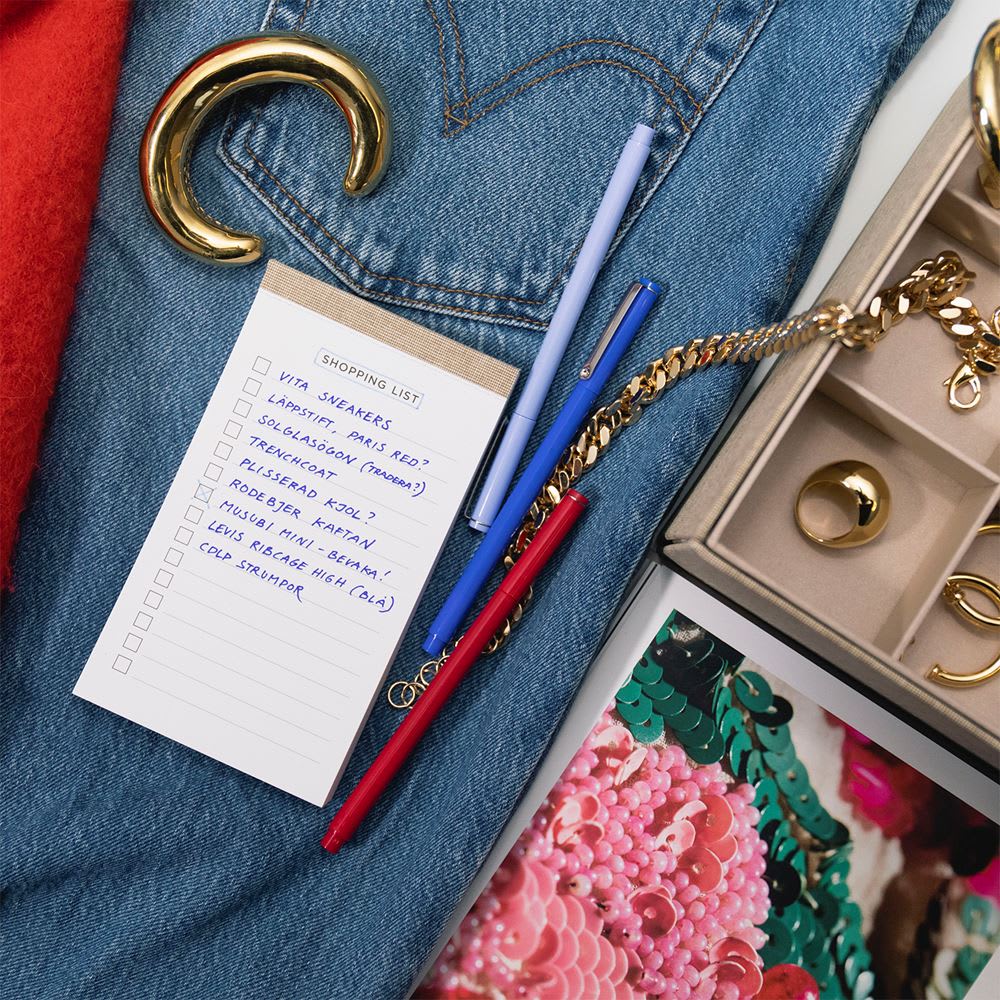 SHOPPING LIST
VITA SNEAKERS
LÄPPSTIFT, PARIS RED?
SOLGLASÖGON (TRADERA?)
TRENCHCOAT
PLISSERAD KJOL?
RODEBJER KAFTAN
MUSUBI MINI - BEVAKA!
LEVIS RIBCAGE HIGH (BLÅ)
CDLP STRUMPOR